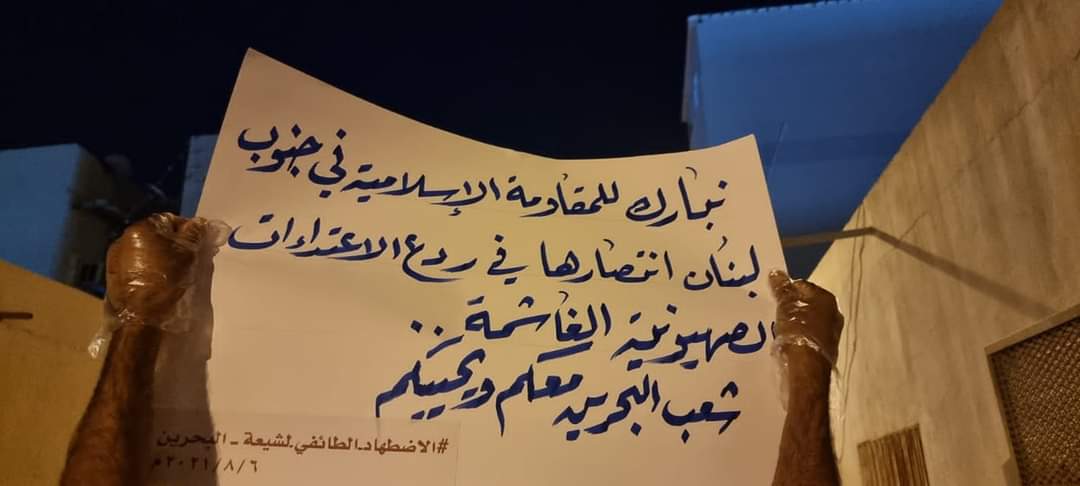 نبارك للمقاومة الإسلامية في جنوب
لبنان انتصارها في ردع الاعتداءات
الصهيونية الغاشمة..
شعب البحرين معكم ويحييكم
#الاضطهاد_الطائفي_لشيعة_البحرين
٢٠٢١/٨/٦م